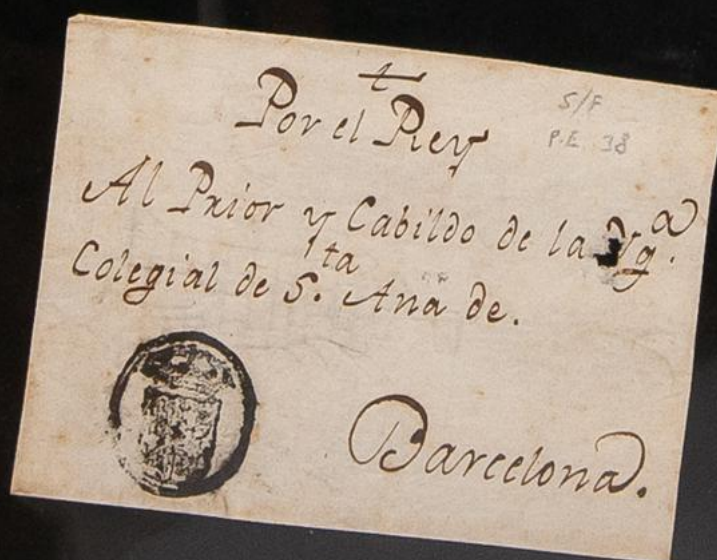 Por el Rey
S/F
P.E. 38
Al Prior y Cabildo de la Yg.ª
Colegial de S.ta Ana de.
Barcelona.